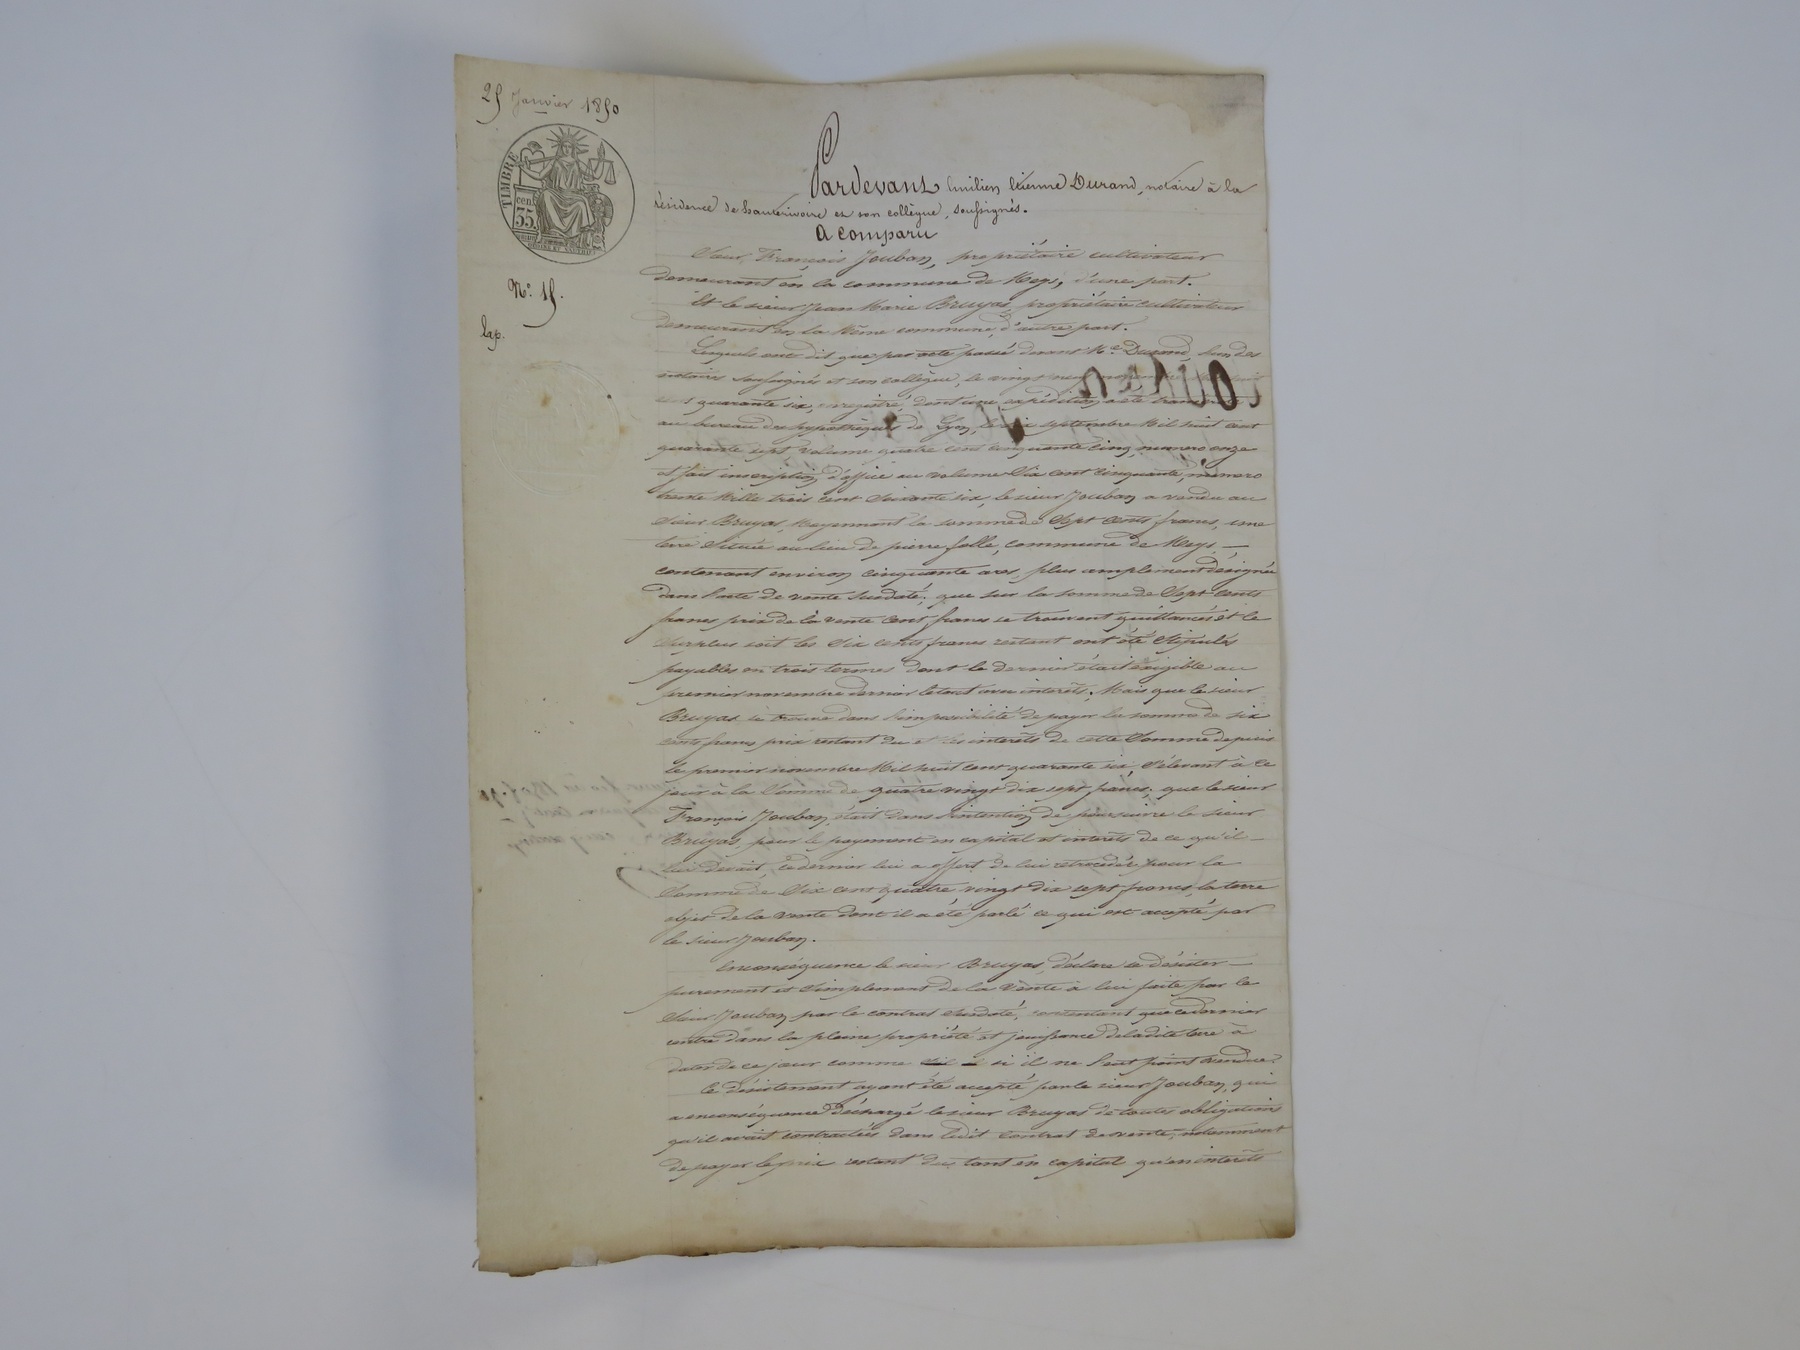 25 Janvier 1850
TIMBRE
35 cent
N.º 15.
Pardevant Emilien Etienne Durand, notaire à la
résidence de hauterivoire et son collègue, soussignés.
A comparu
Sieur, François Jouban, propriétaire cultivateur
demeurant en la commune de Meys, d'une part.
Et le sieur Jean Marie Bruyas, propriétaire cultivateur
demeurant en la Même commune, d'autre part.
Lesquels ont dit que par acte passé devant Me. Durand, l'un des
notaires soussignés et son collègue, le vingt neuf
cent quarante six, enregistré, dont une expédition a été
au bureau des hypothèques de Lyon, le six septembre Mil huit cent
quarante sept, volume quatre cent cinquante cinq, numero onze
et fait inscription d'office au volume Six cent cinquante, numero
trente Mille trois cent Soixante six, le sieur Jouban a vendu au
Sieur Bruyas, Moyennant la somme de Sept Cents francs, une
terre Située au lieu de pierre folle, commune de Meys, —
contenant environ cinquante ares, plus amplement désignée
dans l'acte de vente Susdaté; que sur la somme de Sept Cents
francs prix de la vente Cent francs se trouvent quittancés et le
Surplus soit les Six Cents francs restant ont été Stipulés
payables en trois termes dont le dernier était exigible au
premier novembre dernier le tout avec intérêts. Mais que le sieur
Bruyas se trouve dans l'impossibilité de payer la somme de six
cents francs prix restant du et les intérêts de cette Somme depuis
le premier novembre Mil huit Cent quarante six, S'élevant à ce
jour à la Somme de quatre vingt dix sept francs; que le sieur
François Jouban, était dans l'intention de poursuivre le sieur
Bruyas, pour le payement en capital et intérêts de ce qu'il —
lui devait, ce dernier lui a offert de lui rétrocéder pour la
Somme de Six cent quatre vingt dix sept francs, la terre
objet de la vente dont il a été parlé ce qui est accepté par
le sieur Jouban.
En conséquence le sieur Bruyas, déclare se désister —
purement et Simplement de la Vente à lui faite par le
Sieur Jouban par le contrat Susdaté, consentant que ce dernier
rentre dans la pleine propriété et jouissance de ladite terre à
dater de ce jour comme si il ne l'eut point vendue.
Ce désistement ayant été accepté par le sieur Jouban, qui
a en conséquence déchargé le sieur Bruyas de toutes obligations
qu'il avait contractées dans ledit contrat de vente, notamment
de payer le prix restant du, tant en capital qu'en intérêts